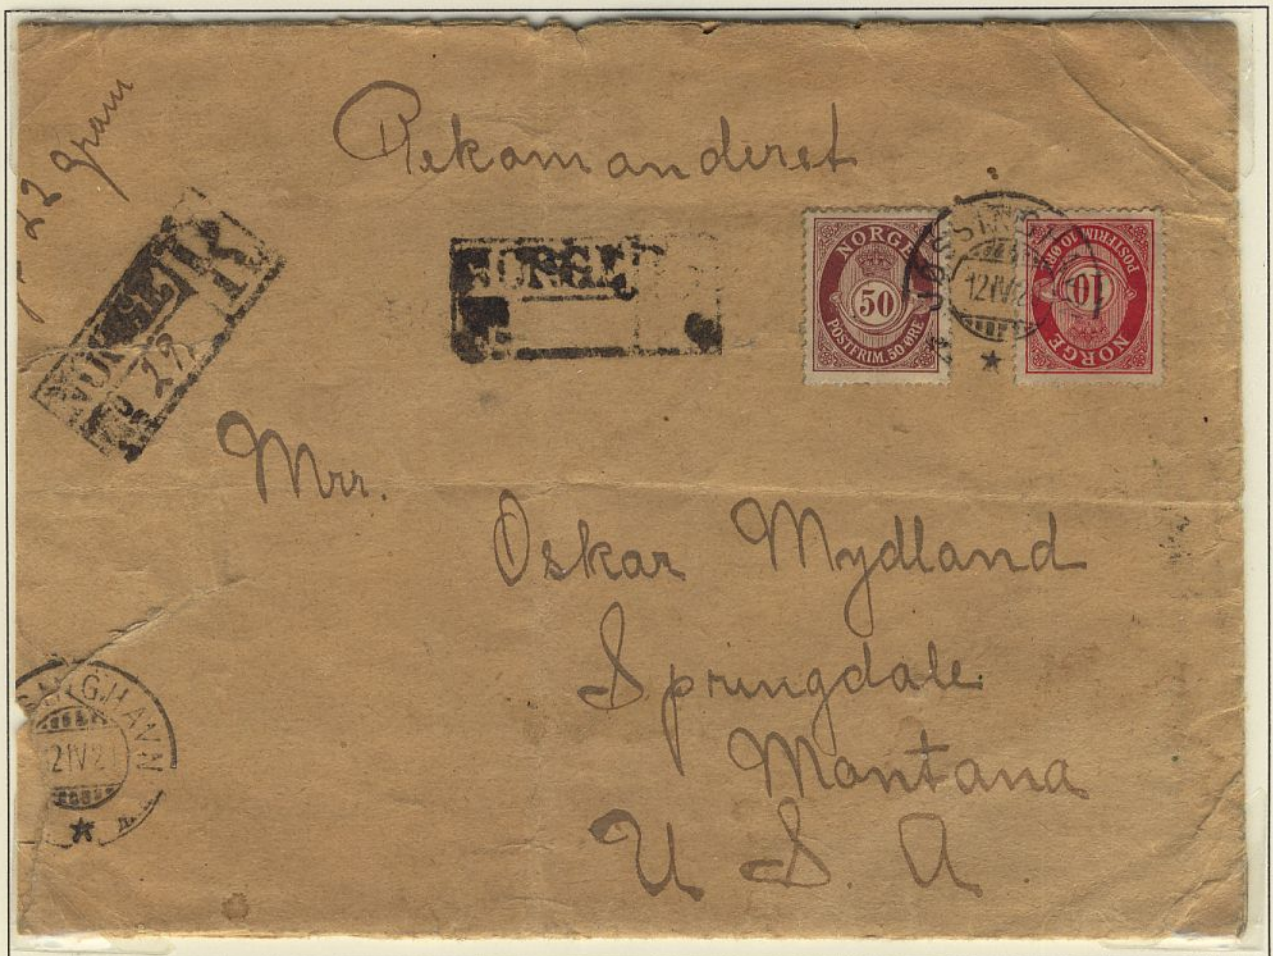 22 gram
Rekomanderet
NORGE R
No 22
NORGE
NORGE
50
POSTFRIM. 50 ØRE
12 IV 2
POSTFRIM. 10 ØRE
10
NORGE
Mrr.
Oskar Mydland
Springdale.
Montana
U. S. A
SINGHAVN
12 IV 21
A.